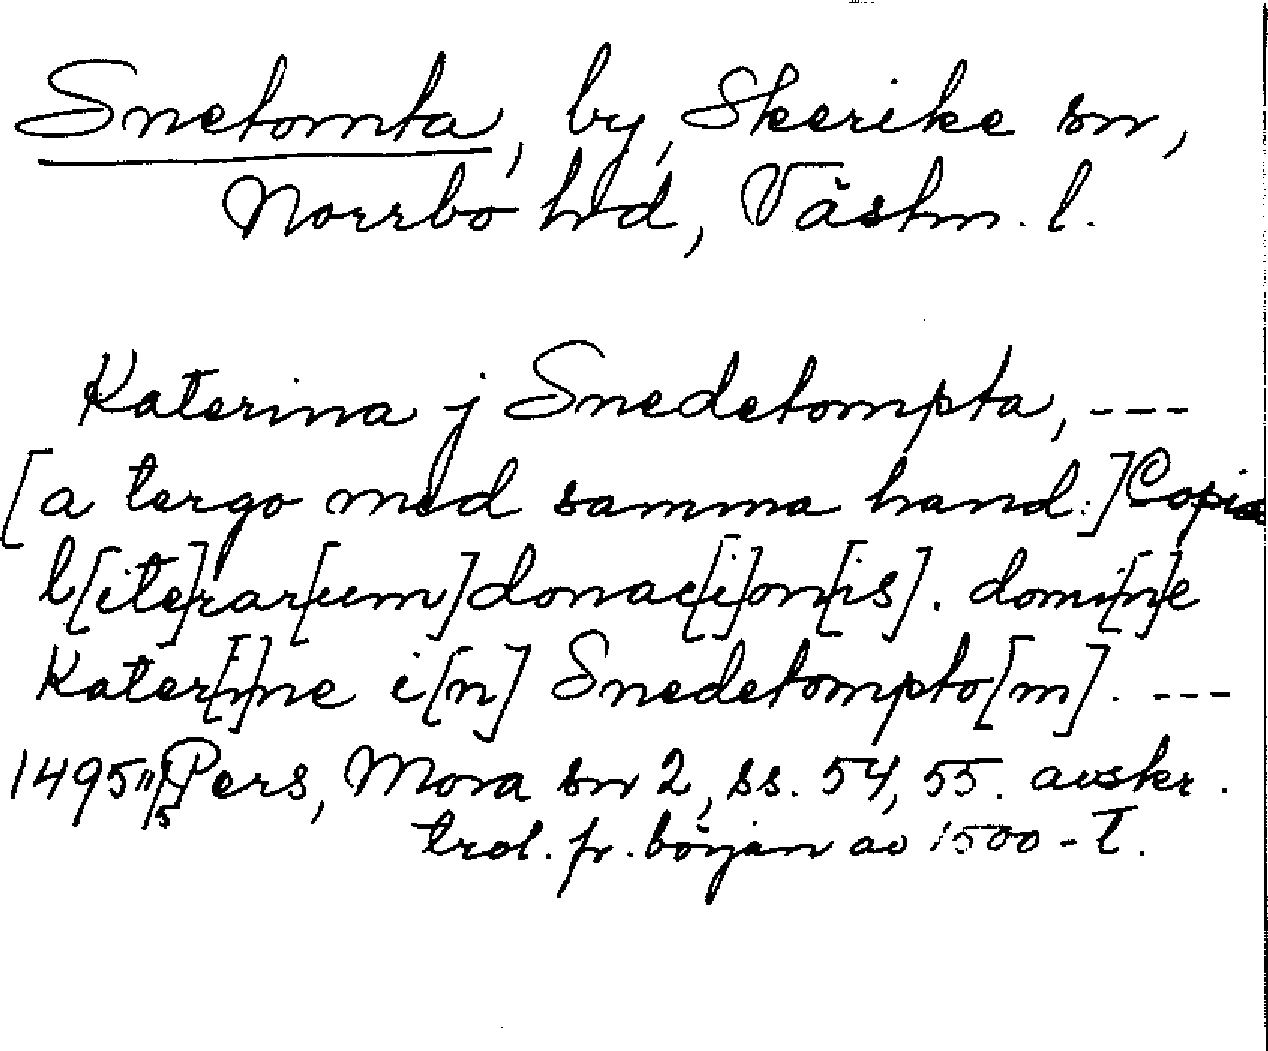 Snetomta, by, Skerike sn,
Norrbo hd, Västm. l.
Katerina j Snedetompta, ---
[a tergo med samma hand:] Copia
l[ite]rar[um] donac[i]on[is]. domi[n]e
Kater[i]ne i[n] Snedetompto[m]. ---
1495 11/5 Pers, Mora sn 2, ss. 54, 55. avskr.
trol. fr. början av 1500-t.